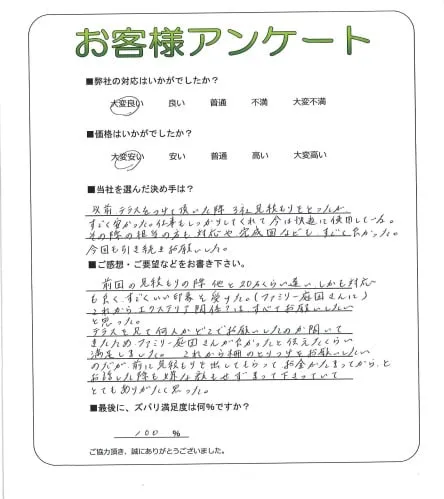 お客様アンケート
■弊社の対応はいかがでしたか？
大変良い　良い　普通　不満　大変不満
■価格はいかがでしたか？
大変安い　安い　普通　高い　大変高い
■当社を選んだ決め手は？
以前テラスをつけて頂いた際 3社見積もりをとったが
すごく安かった。仕事もしっかりしてくれて今は快適に使用している。
その際の担当の方も対応や完成図などもすごく良かった。
今回も引き続きお願いした。
■ご感想・ご要望などをお書き下さい。
前回の見積もりの際 他と20万くらい違い しかも対応
も良く、すごくいい印象を受けた。（ファミリー庭園さんに）
これからエクステリア関係？は、すべてお願いしたい
と思った。
テラスを見て何人かどこでお願いしたのか聞いて
きたためファミリー庭園さんが良かったと伝えたくらい
満足しました。これから柵のとりつけをお願いしたい
のだが、前に見積もりを出してもらって お金がたまってから、と
お話した際も嫌な顔もせずまって下さっていて
とてもありがたく思った。
■最後に、ズバリ満足度は何％ですか？
100 ％
ご協力頂き、誠にありがとうございました。